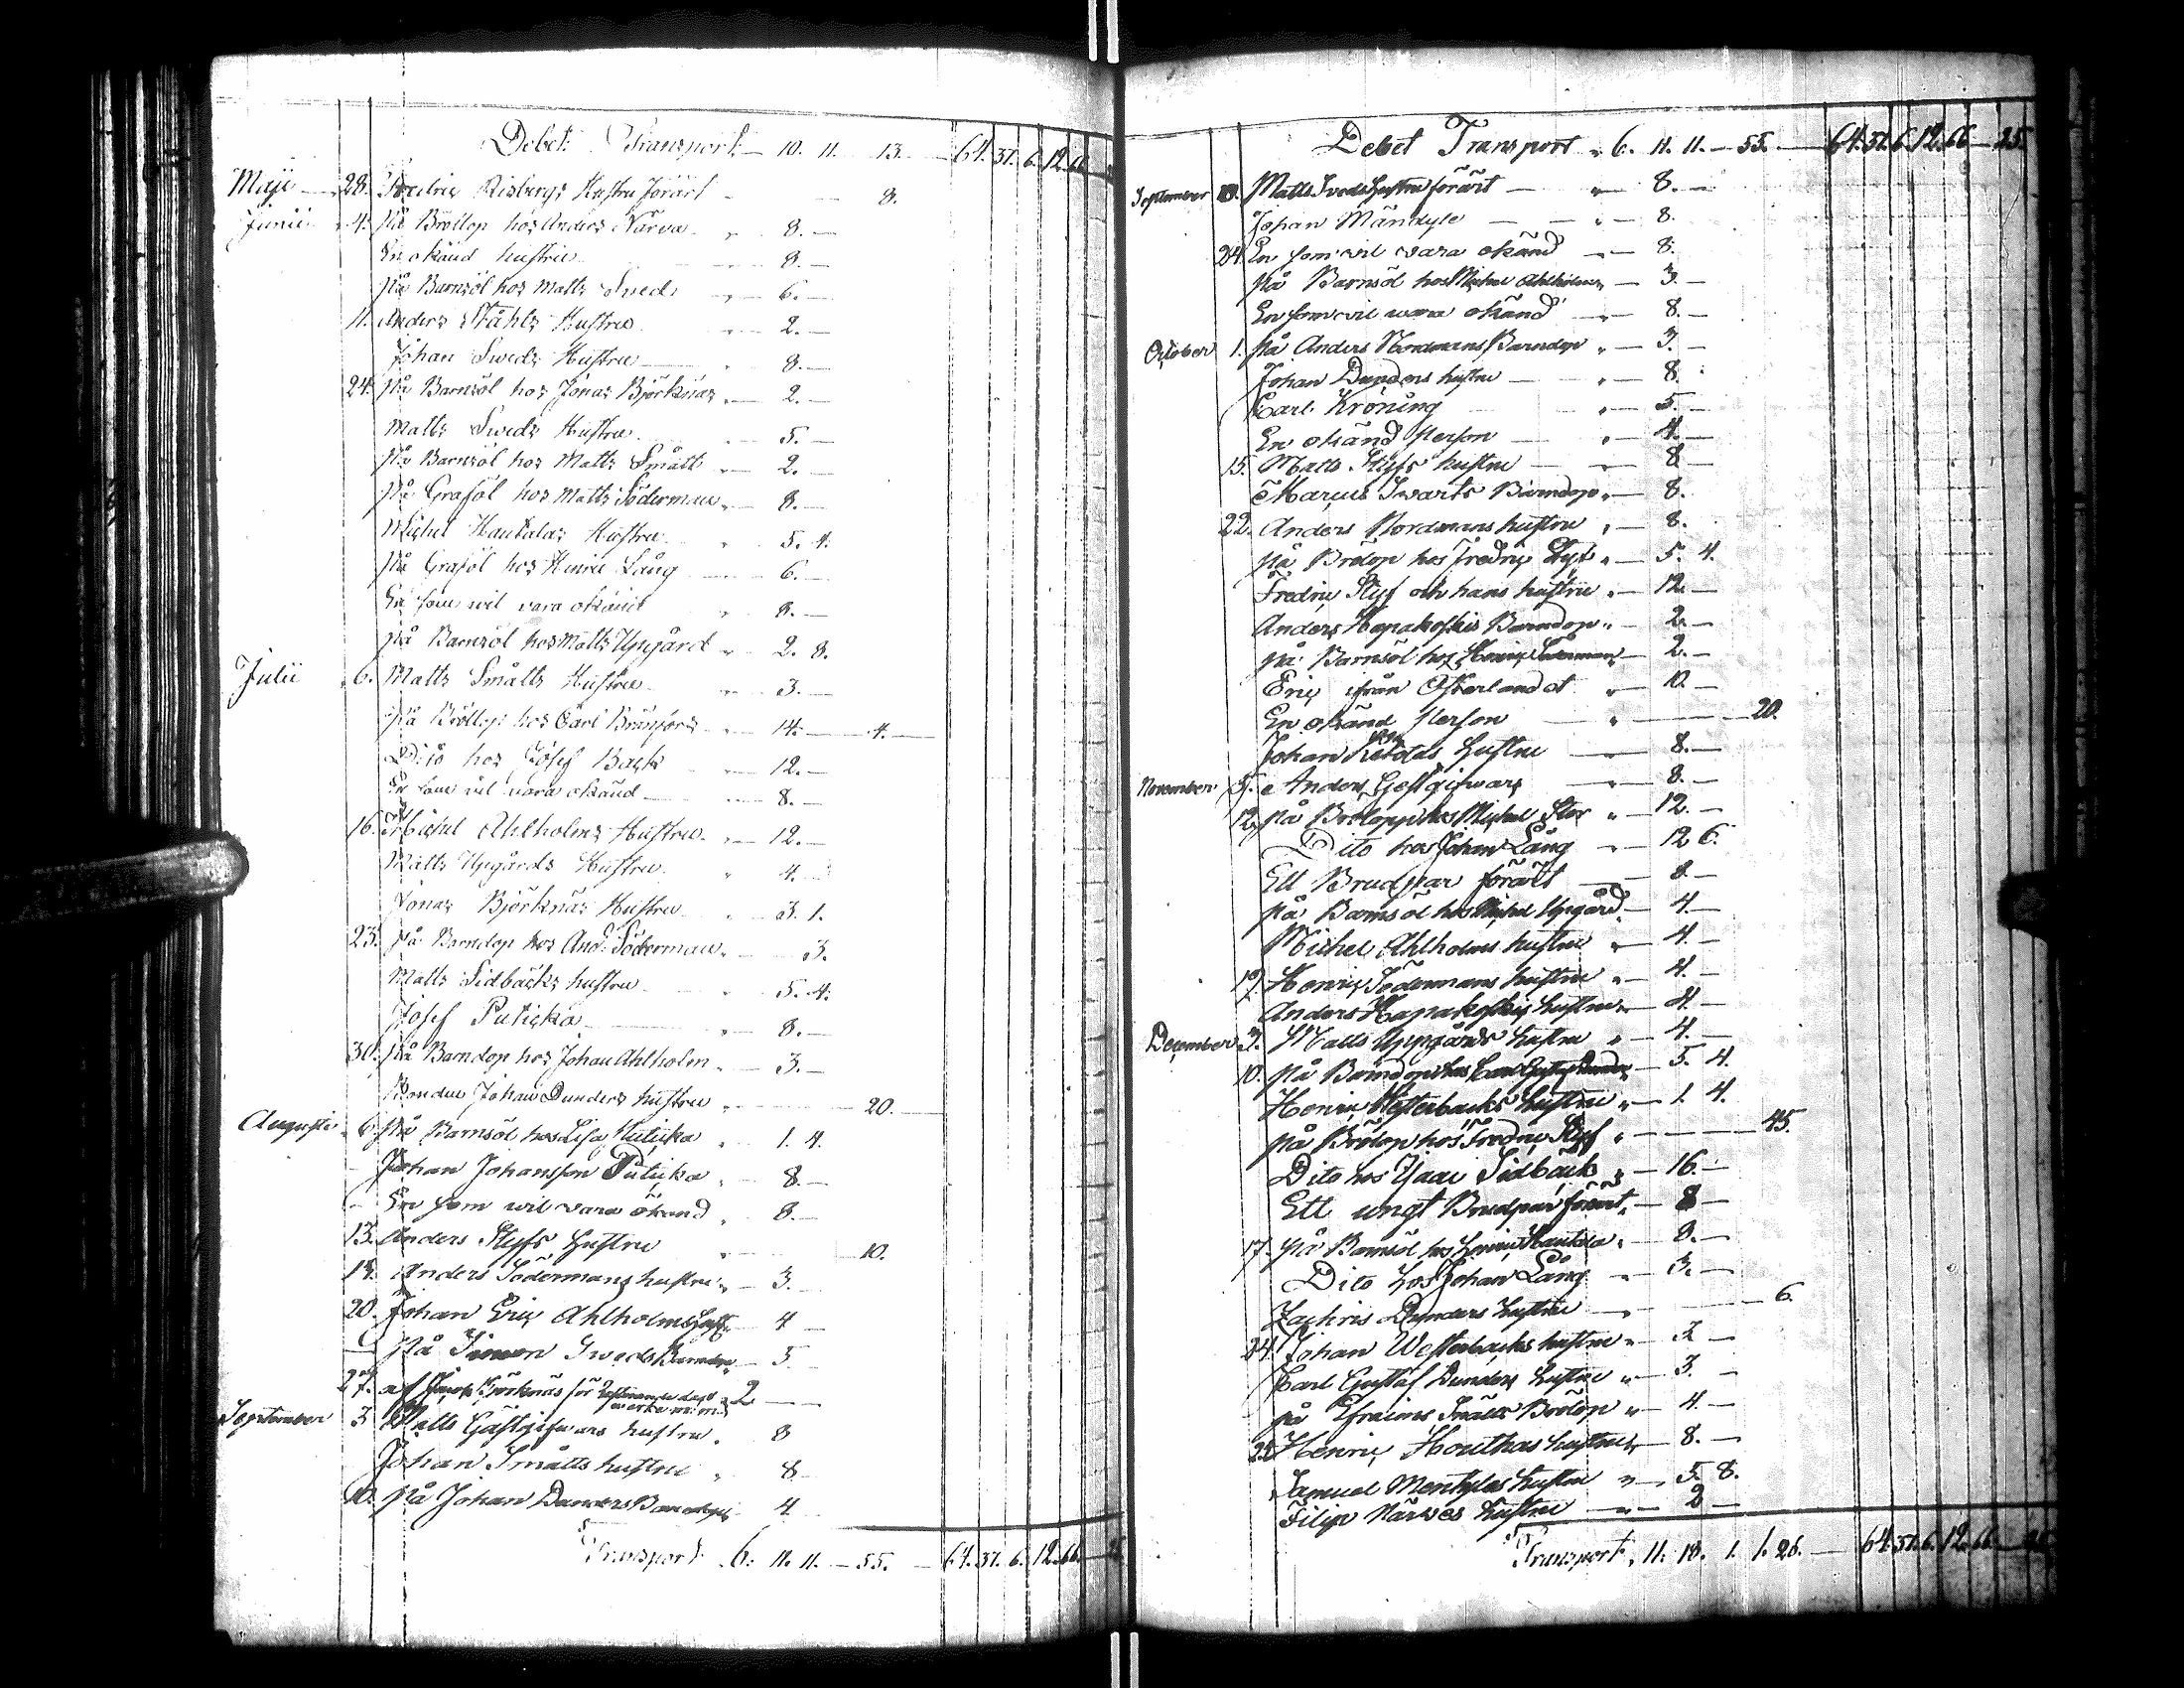 Debet Transport — 10. 11. — 13. — 64. 31. 6. 12. 66
Maji 28. Fredric Risbergs Hustru förärt 8.
Junii 4. På Bröllop hos Anders Närva „ 8. —
En okänd hustru 8. —
På Barnsöl hos Matts Sved „ 6. —
11. Anders Ståhls Hustru „ 2. —
Johan Sweds Hustru „ 8. —
24. På Barnsöl hos Jonas Björknäs „ 2. —
Matts Sweds Hustru „ 5. —
På Barnsöl hos Matts Smått „ 2. —
På Grafӧl hos Matts Söderman „ 8. —
Michel Hautalas Hustru „ 5. 4.
På Graföl hos Henric Lång — 6. —
En som wil vara okänd „ 8. —
På Barnsöl hos Matts Upgård „ 2. 8.
Julii 6. Matts Smålts Hustru „ 3. —
På Bröllop hos Carl Brunfors „ 14. — 4. —
Dito hos Josef Back „ 12. —
En som vil vara okänd — 8. —
16. Michel Ahlholms Hustru „ 12. —
Matts Upgårds Hustru „ 4. —
Jonas Björknäs Hustru „ 3. 1.
23. På Barndop hos And. Söderman „ 3.
Matts Sidbäcks hustru „ 5. 4.
Josef Puticka „ 8. —
30. På Barndop hos Johan Ahlholm „ 3. —
Bonden Johan Dunders hustru „ 20. —
Augusti 6. På Barnsöl hos Lisa Puticka „ 1. 4.
Johan Johansson Puticka „ 8. —
En som wil vara okänd „ 8. —
13. Anders Styfs Hustru „ 10.
Anders Södermans hustru „ 3.
20. Johan Eric Ahlholms Hust. 4 —
På Simon Sweds Barndop „ 5. —
27. af Jacob Björknäs för 2 —
September 3 Matts Gästgifwars hustru „ 8
Johan Smålts hustru „ 8
10. På Johan Dunders Barndop 4
Transport „ 6. 11. 11. — 55. — 64. 31. 6. 12. 66. —
Debet Transport „ 6. 11. 11. — 55. — 64. 31. 6. 12. 66 — 25.
September Matts Sveds Hustru förärt — „ 8. —
Johan Mäntyle — „ 8.
24. En som vil vara okänd — 8.
På Barnsöl hos Michel Ahlholm „ — 3. —
En som vil wara okänd — 8. —
October 1. På Anders Nordmans Barndop „ — 3. —
Johan Dunders hustru — „ — 8.
Carl Kröning „ — 5. —
En okänd Person — „ — 4. —
15. Matts Styfs hustru — 8
Marcus Swarts Barndop „ — 8.
22. Anders Nordmans hustru „ — 8.
På Brölop hos Fredric Styf „ — 5. 4.
Fredric Styf och hans hustru „ — 12. —
Anders Hapakoskis Barndop „ — 2. —
På Barnsöl hos Henric Söderman — 2. —
Eric ifrån Österlandet „ — 10. —
En okänd Person — „ — 20.
Johan Hustru — 8. —
November 5. Anders Gestgifwars — 8. —
12. På Brölop hos Michel Stor „ — 12. —
Dito hos Johan Lång „ — 12 6.
Ett Brudpar förärt — 8. —
På Barnsöl hos Michel Upgård — 4. —
Michel Ahlholms hustru „ — 4. —
19. Henric Södermans hustru „ — 4. —
Anders Hapakoskis hustru „ — 4. —
December 3. Matts Uppgårds hustru „ — 4. —
10. På Barndop hos Carl Gustaf Dunder — 5. 4.
Henric Westerbacks hustru „ — 1. 4.
På Brölop hos Fredric Styf „ — 45.
Dito hos Isaac Sidbäck „ — 16. —
Ett ungt Brudpar förärt „ — 8 —
17. På Barnsöl hos Henric Hautala „ — 8. —
Dito hos Johan Lång „ — 3. —
Zachris Dunders hustru — „ — 6.
24. Johan Westerbacks hustru „ — 3 —
Carl Gustaf Dunders hustru „ — 3. —
På Efraims Smålts Brölop „ — 4. —
Henric Houtkas hustru „ — 8. —
Samuel Mentylas hustru „ — 5. 8.
Filip Närwes hustru — 2 —
Transport „ 11. 18. 1. 1. 26. — 64. 31. 6. 12. 66 —